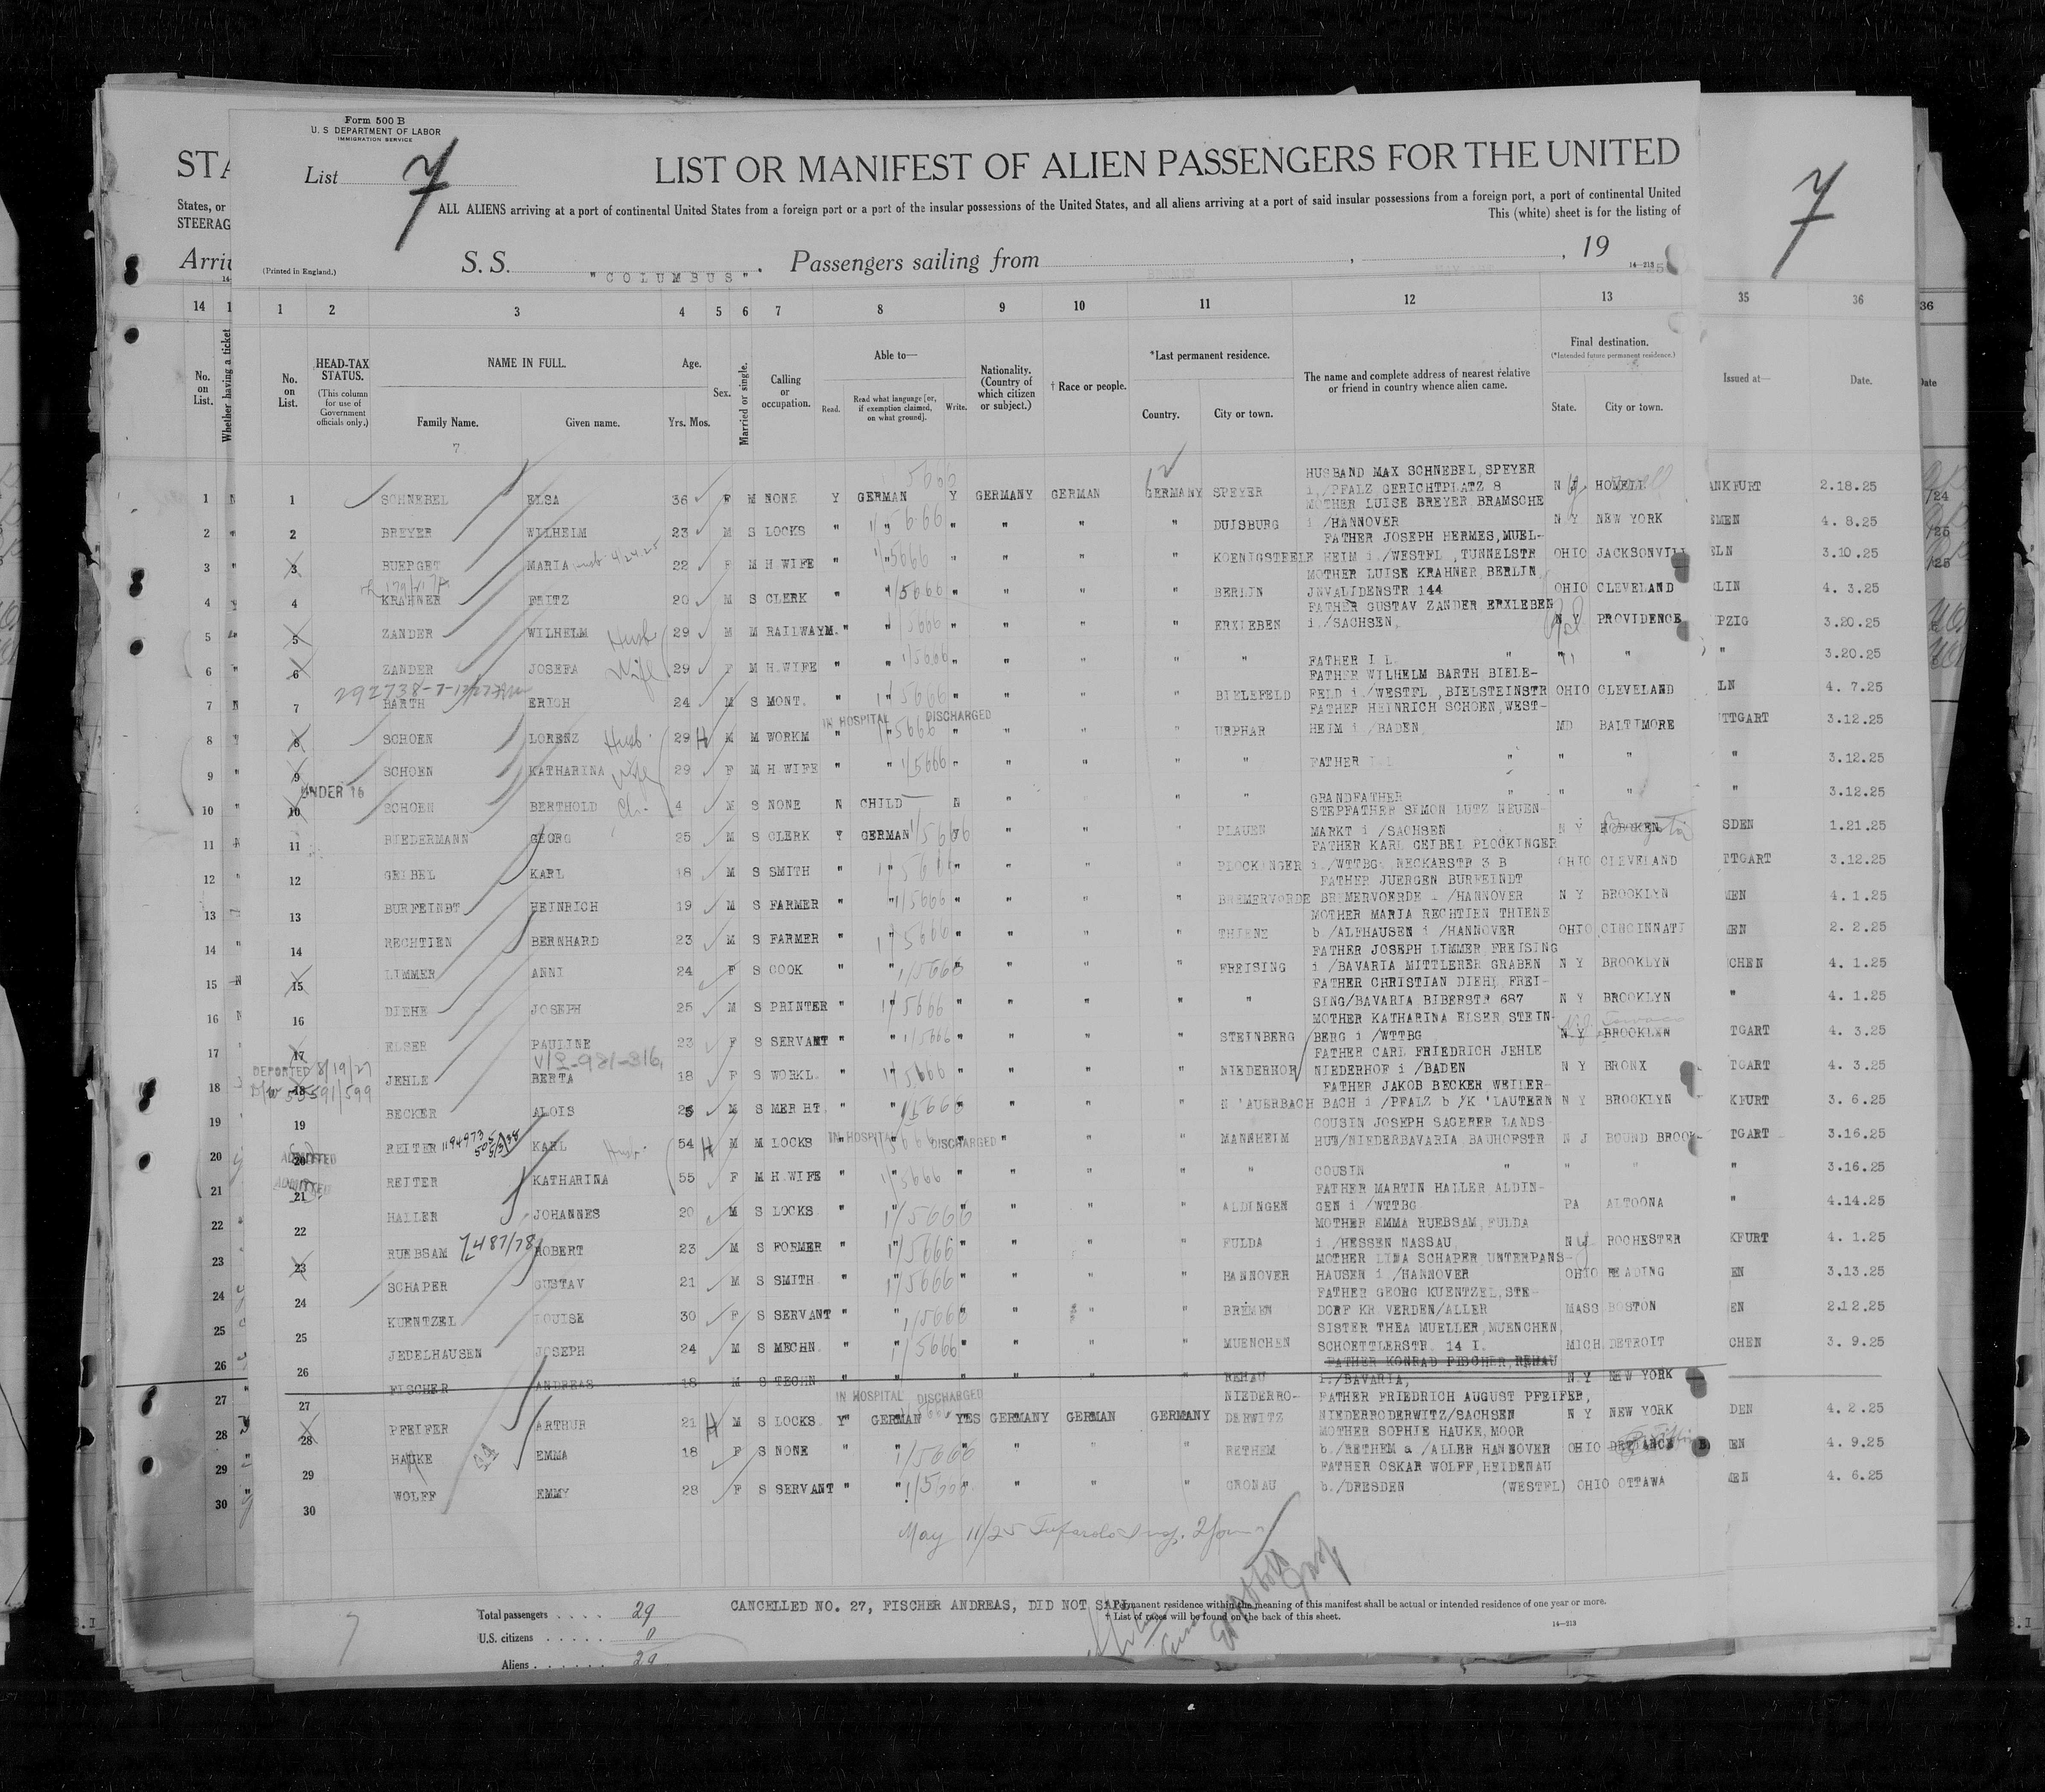 Form 500 B
U. S DEPARTMENT OF LABOR
IMMIGRATION SERVICE
STA
List 7
LIST OR MANIFEST OF ALIEN PASSENGERS FOR THE UNITED
7
States, or
STEERAG
ALL ALIENS arriving at a port of continental United States from a foreign port or a port of the insular possessions of the United States, and all aliens arriving at a port of said insular possessions from a foreign port, a port of continental United
This (white) sheet is for the listing of
Arri
(Printed in England.)
S. S. "COLUMBUS". Passengers sailing from , , 19
14—213
14 1 2 3 4 5 6 7 8 9 10 11 12 13 35 36
No. on List.
Whether having a ticket
No. on List.
HEAD-TAX STATUS.
(This column for use of Government officials only.)
NAME IN FULL.
Family Name.
Given name.
Age.
Yrs. Mos.
Sex.
Married or single.
Calling or occupation.
Able to—
Read.
Read what language [or, if exemption claimed, on what ground].
Write.
Nationality. (Country of which citizen or subject.)
† Race or people.
*Last permanent residence.
Country.
City or town.
The name and complete address of nearest relative or friend in country whence alien came.
Final destination.
(*Intended future permanent residence.)
State.
City or town.
Issued at—
Date.
7
HUSBAND MAX SCHNEBEL, SPEYER
1 1 SCHNEBEL ELSA 36 F M NONE Y GERMAN Y GERMANY GERMAN GERMANY SPEYER i./PFALZ GERICHTPLATZ 8 N Y HOWELL ANKFURT 2.18.25
MOTHER LUISE BREYER, BRAMSCHE
2 2 BREYER WILHELM 23 M S LOCKS " " " " " " DUISBURG i /HANNOVER N Y NEW YORK EMEN 4. 8.25
FATHER JOSEPH HERMES, MUEL-
3 3 BUERGET MARIA 22 F M H.WIFE " " " " " " KOENIGSTEELE HEIM i./WESTFL ,TUNNELSTR OHIO JACKSONVILL ELN 3.10.25
MOTHER LUISE KRAHNER, BERLIN
4 4 KRAHNER FRITZ 20 M S CLERK " " " " " " BERLIN JNVALIDENSTR 144 OHIO CLEVELAND LIN 4. 3.25
FATHER GUSTAV ZANDER ERXLEBEN
5 5 ZANDER WILHELM Husb 29 M M RAILWAYM. " " " " " " ERXLEBEN i./SACHSEN, N Y PROVIDENCE PZIG 3.20.25
6 6 ZANDER JOSEFA Wife 29 F M H.WIFE " " " " " " " FATHER I L " " " " 3.20.25
FATHER WILHELM BARTH BIELE-
7 7 BARTH ERICH 24 M S MONT. " " " " " " BIELEFELD FELD i./WESTFL ,BIELSTEINSTR OHIO CLEVELAND LN 4. 7.25
FATHER HEINRICH SCHOEN, WEST-
IN HOSPITAL DISCHARGED
8 8 SCHOEN LORENZ Husb. 29 H M M WORKM " " " " " " URPHAR HEIM i /BADEN MD BALTIMORE TTGART 3.12.25
9 9 SCHOEN KATHARINA Wife 29 F M H.WIFE " " " " " " " FATHER " " " " 3.12.25
UNDER 16
10 10 SCHOEN BERTHOLD Chi 4 M S NONE N CHILD N " " " " GRANDFATHER " " " " 3.12.25
STEPFATHER SIMON LUTZ NEUEN-
11 11 BIEDERMANN GEORG 25 M S CLERK Y GERMAN Y " " " PLAUEN MARKT i /SACHSEN N Y HOBOKEN SDEN 1.21.25
FATHER KARL GEIBEL PLOCKINGER
12 12 GEIBEL KARL 18 M S SMITH " " " " " " PLOCKINGER i./WTTBG. NECKARSTR 3 B OHIO CLEVELAND TTGART 3.12.25
FATHER JUERGEN BURFEINDT
13 13 BURFEINDT HEINRICH 19 M S FARMER " " " " " " BREMERVORDE BREMERVOERDE i /HANNOVER N Y BROOKLYN MEN 4. 1.25
MOTHER MARIA RECHTIEN THIENE
14 14 RECHTIEN BERNHARD 23 M S FARMER " " " " " " THIENE b /ALFHAUSEN i /HANNOVER OHIO CINCINNATI MEN 2. 2.25
FATHER JOSEPH LIMMER, FREISING
15 15 LIMMER ANNI 24 F S COOK " " " " " " FREISING i /BAVARIA MITTLERER GRABEN N Y BROOKLYN CHEN 4. 1.25
FATHER CHRISTIAN DIEHE, FREI-
16 16 DIEHE JOSEPH 25 M S PRINTER " " " " " " " SING/BAVARIA BIBERSTR 687 N Y BROOKLYN " 4. 1.25
MOTHER KATHARINA ELSER, STEIN-
17 17 ELSER PAULINE 23 F S SERVANT " " " " " " STEINBERG BERG i /WTTBG N Y BROOKLYN TGART 4. 3.25
V/2-981-316
DEPORTED 8/19/27
FATHER CARL FRIEDRICH JEHLE
18 18 55591/599 JEHLE BERTA 18 F S WORKL. " " " " " " NIEDERHOF NIEDERHOF i /BADEN N Y BRONX TGART 4. 3.25
FATHER JAKOB BECKER WEILER-
19 19 BECKER ALOIS 25 M S MER HT. " " " " " " N 'AUERBACH BACH i /PFALZ b /K.'LAUTERN N Y BROOKLYN KFURT 3. 6.25
COUSIN JOSEPH SAGERER LANDS-
IN HOSPITAL DISCHARGED
20 ADMITTED 20 REITER KARL Husb. 54 H M M LOCKS " " " " " " MANNHEIM HUT/NIEDERBAVARIA, BAUHOFSTR N J BOUND BROOK TGART 3.16.25
21 ADMITTED 21 REITER KATHARINA 55 F M H.WIFE " " " " " " " COUSIN " " " " 3.16.25
FATHER MARTIN HALLER ALDIN-
22 22 HALLER JOHANNES 20 M S LOCKS " " " " " " ALDINGEN GEN i /WTTBG PA ALTOONA " 4.14.25
MOTHER EMMA RUEBSAM, FULDA
23 23 RUEBSAM ROBERT 23 M S FORMER " " " " " " FULDA i./HESSEN NASSAU, N Y ROCHESTER KFURT 4. 1.25
MOTHER LINA SCHAPER UNTERPANS-
24 24 SCHAPER GUSTAV 21 M S SMITH " " " " " " HANNOVER HAUSEN i /HANNOVER OHIO READING EN 3.13.25
FATHER GEORG KUENTZEL, STE-
25 25 KUENTZEL LOUISE 30 F S SERVANT " " " " " " BREMEN DORF KR VERDEN/ALLER MASS BOSTON EN 2.12.25
SISTER THEA MUELLER, MUENCHEN,
26 26 JEDELHAUSEN JOSEPH 24 M S MECHN. " " " " " " MUENCHEN SCHOETTLERSTR. 14 I. MICH DETROIT CHEN 3. 9.25
FATHER KONRAD FISCHER, REHAU
27 27 FISCHER ANDREAS 18 M S TECHN " " " " " " REHAU i./BAVARIA, N Y NEW YORK
IN HOSPITAL DISCHARGED
NIEDERRO- FATHER FRIEDRICH AUGUST PFEIFER,
28 28 PFEIFER ARTHUR 21 H M S LOCKS Y GERMAN YES GERMANY GERMAN GERMANY DERWITZ NIEDERRODERWITZ/SACHSEN N Y NEW YORK DEN 4. 2.25
MOTHER SOPHIE HAUKE, MOOR
29 29 HAUKE EMMA 18 F S NONE " " " " " " RETHEM b./RETHEM a /ALLER HANNOVER OHIO DEFIANCE EN 4. 9.25
FATHER OSKAR WOLFF, HEIDENAU
30 30 WOLFF EMMY 28 F S SERVANT " " " " " " GRONAU b./DRESDEN (WESTFL) OHIO OTTAWA MEN 4. 6.25
May 11/25
Total passengers . . . . 29
CANCELLED NO. 27, FISCHER ANDREAS, DID NOT SAIL.
* Permanent residence within the meaning of this manifest shall be actual or intended residence of one year or more.
† List of races will be found on the back of this sheet.
14—213
U.S. citizens . . . . . 0
Aliens . . . . . . 29